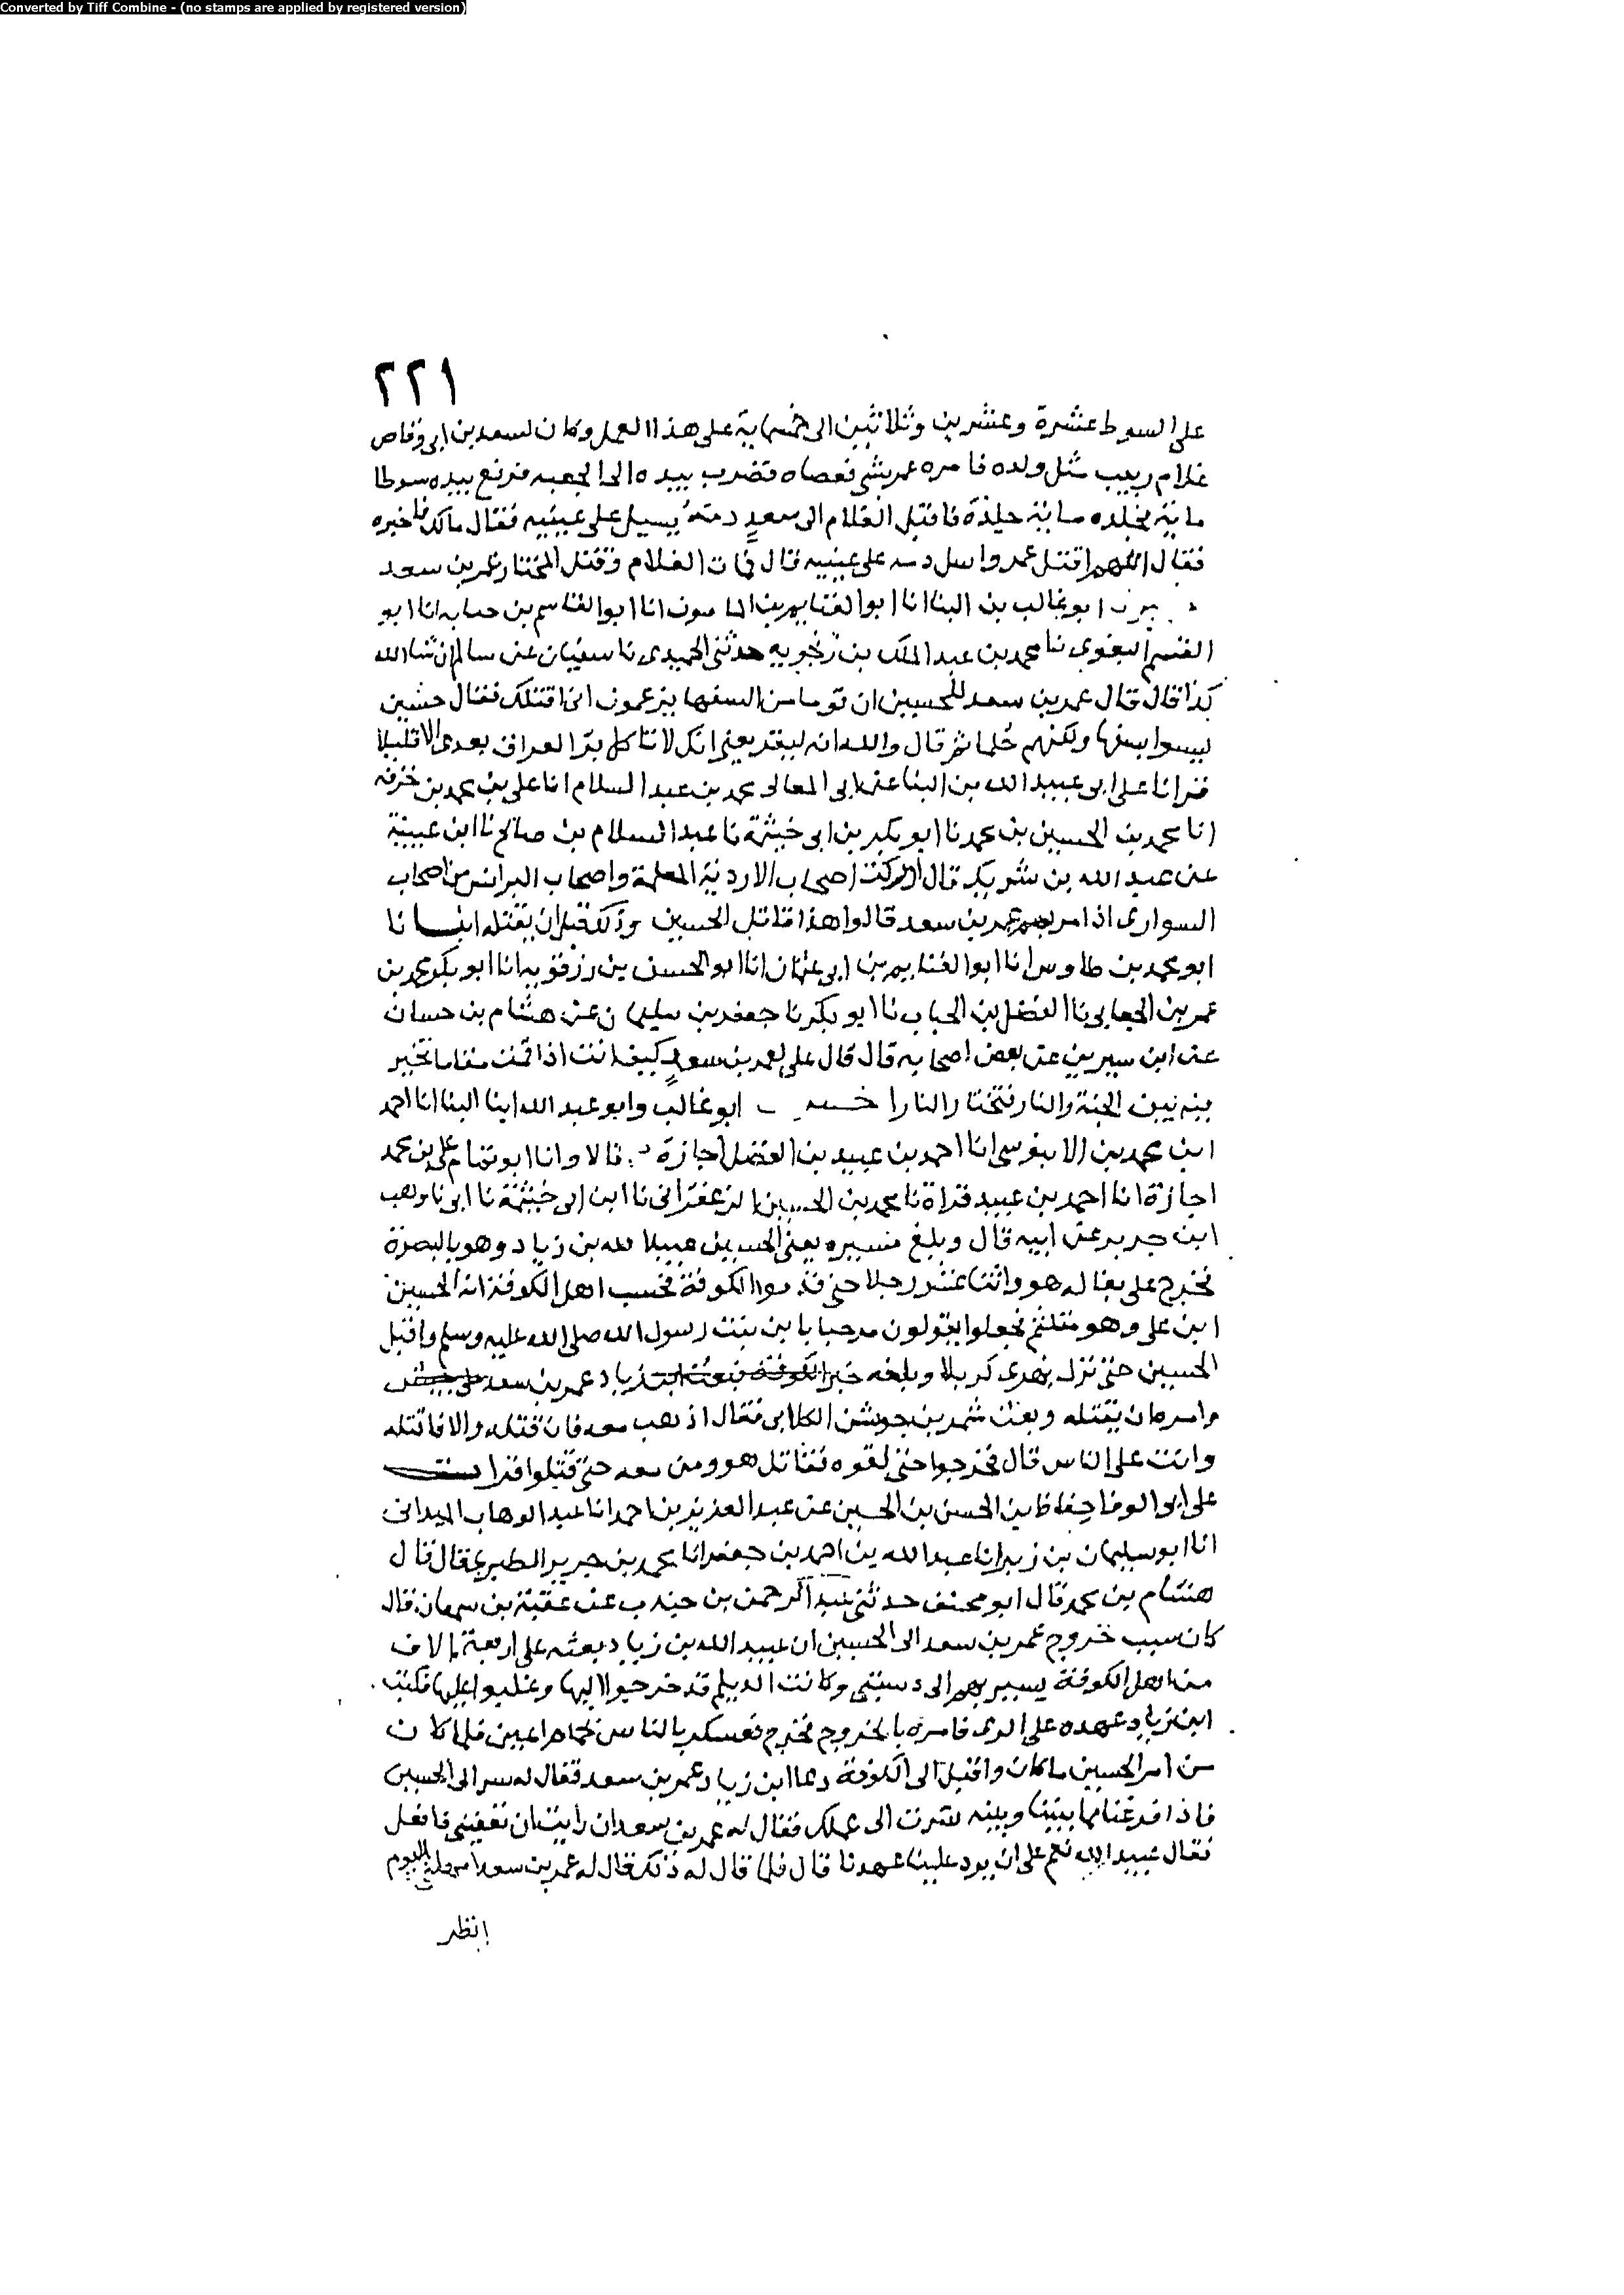 Converted by Tiff Combine - (no stamps are applied by registered version)
٢٢١
على السوط عشرة وعشرين وثلاثين الى خمسماية على هذا العمل وكان لسعد بن ابي وقاص
غلام ربيب مثل ولده فامره عمر بشي فعصاه فضرب بيده الى الجعبه فرفع بيده سوطا
ماية فجلده ماية جلدة فاقبل الغلام الى سعد دمه يسيل على عينيه فقال مالك فاخبره
فقال اللهم اقتل عمر واسل دمه على عينيه قال فمات الغلام وقتل المختار عمر بن سعد
ابو غالب بن البنا انا ابو الغنايم بن المامون انا ابو القاسم بن حبابه انا ابو
القسم البغوي نا محمد بن عبد الملك بن زنجويه حدثني الحميدي نا سفيان عن سالم ان شا الله
كذا قال قال عمر بن سعد للحسين ان قوما من السفها يزعمون اني اقتلك فقال حسين
ليسوا بسفها ولكنهم حلما ثم قال والله انه ليقر بعيني انك لا تاكل بر العراق بعدي الا قليلا
قرانا على ابي عبد الله بن البنا عن ابي المعالي محمد بن عبد السلام انا علي بن محمد بن خزفه
انا محمد بن الحسين بن محمد نا ابو بكر بن ابي خيثمة نا عبد السلام بن صالح نا ابن عيينة
عن عبد الله بن شريك قال ادركت اصحاب الاردية المعلمة واصحاب البرانس من اصحاب
السواري اذا مر بهم عمر بن سعد قالوا هذا قاتل الحسين وذلك قبل ان يقتله انبانا
ابو محمد بن طاوس انا ابو الغنايم بن ابي عثمان انا ابو الحسن بن رزقويه انا ابو بكر محمد بن
عمر بن الجعابي نا الفضل بن الحباب نا ابو بكر نا جعفر بن سليمان عن هشام بن حسان
عن ابن سيرين عن بعض اصحابه قال قال علي لعمر بن سعد كيف انت اذا قمت مقاما تخير
فيه بين الجنة والنار فتختار النار اخبرنا ابو غالب وابو عبد الله ابنا البنا انا احمد
ابن محمد بن الابنوسي انا احمد بن عبيد بن الفضل اجازة ح قالا وانا ابو تمام علي بن محمد
اجازة انا احمد بن عبيد قراة نا محمد بن الحسين الزعفراني نا ابن ابي خيثمة نا ابي نا وهب
ابن جرير عن ابيه قال وبلغ مسيره يعني الحسين عبيد الله بن زياد وهو بالبصرة
فخرج على بغاله هو واثنا عشر رجلا حتى قدموا الكوفة فحسب اهل الكوفة انه الحسين
ابن علي وهو متلثم فجعلوا يقولون مرحبا يا ابن بنت رسول الله صلى الله عليه وسلم واقبل
الحسين حتى نزل بنهري كربلا وبلغه خبر الكوفة فبعث ابن زياد عمر بن سعد على جيش
وامره ان يقتله وبعث شمر بن جوشن الكلابي فقال اذهب معه فان قتله والا فاقتله
وانت على الناس قال فخرجوا حتى لقوه فقاتل هو ومن معه حتى قتلوا قرات
على ابي الوفا حفاظ بن الحسن بن الحسين عن عبد العزيز بن احمد انا عبد الوهاب الميداني
انا ابو سليمان بن زبر انا عبد الله بن احمد بن جعفر انا محمد بن جرير الطبري قال قال
هشام بن محمد قال ابو مخنف حدثني عبد الرحمن بن جندب عن عقبة بن سمعان قال
كان سبب خروج عمر بن سعد الى الحسين ان عبيد الله بن زياد بعثه على اربعة الاف
من اهل الكوفة يسير بهم الى دستبي وكانت الديلم قد خرجوا اليها وغلبوا عليها فكتب
ابن زياد عهده على الري فامره بالخروج فخرج فعسكر بالناس بحمام اعين فلما كان
من امر الحسين ما كان واقبل الى الكوفة دعا ابن زياد عمر بن سعد فقال له سر الى الحسين
فاذا فرغنا مما بيننا وبينه سرت الى عملك فقال له عمر بن سعد ان رايت ان تعفيني فافعل
فقال عبيد الله نعم على ان يرد علينا عهدنا قال فلما قال له ذلك قال له عمر بن سعد امهلني اليوم
انظر